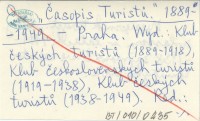 „Časopis Turistů." 1889-
-1949. – Praha. Wyd.: Klub
českých turistů (1889-1918),
Klub československých turistů
(1919-1938), Klub českých
turistů (1938-1949). Red.: